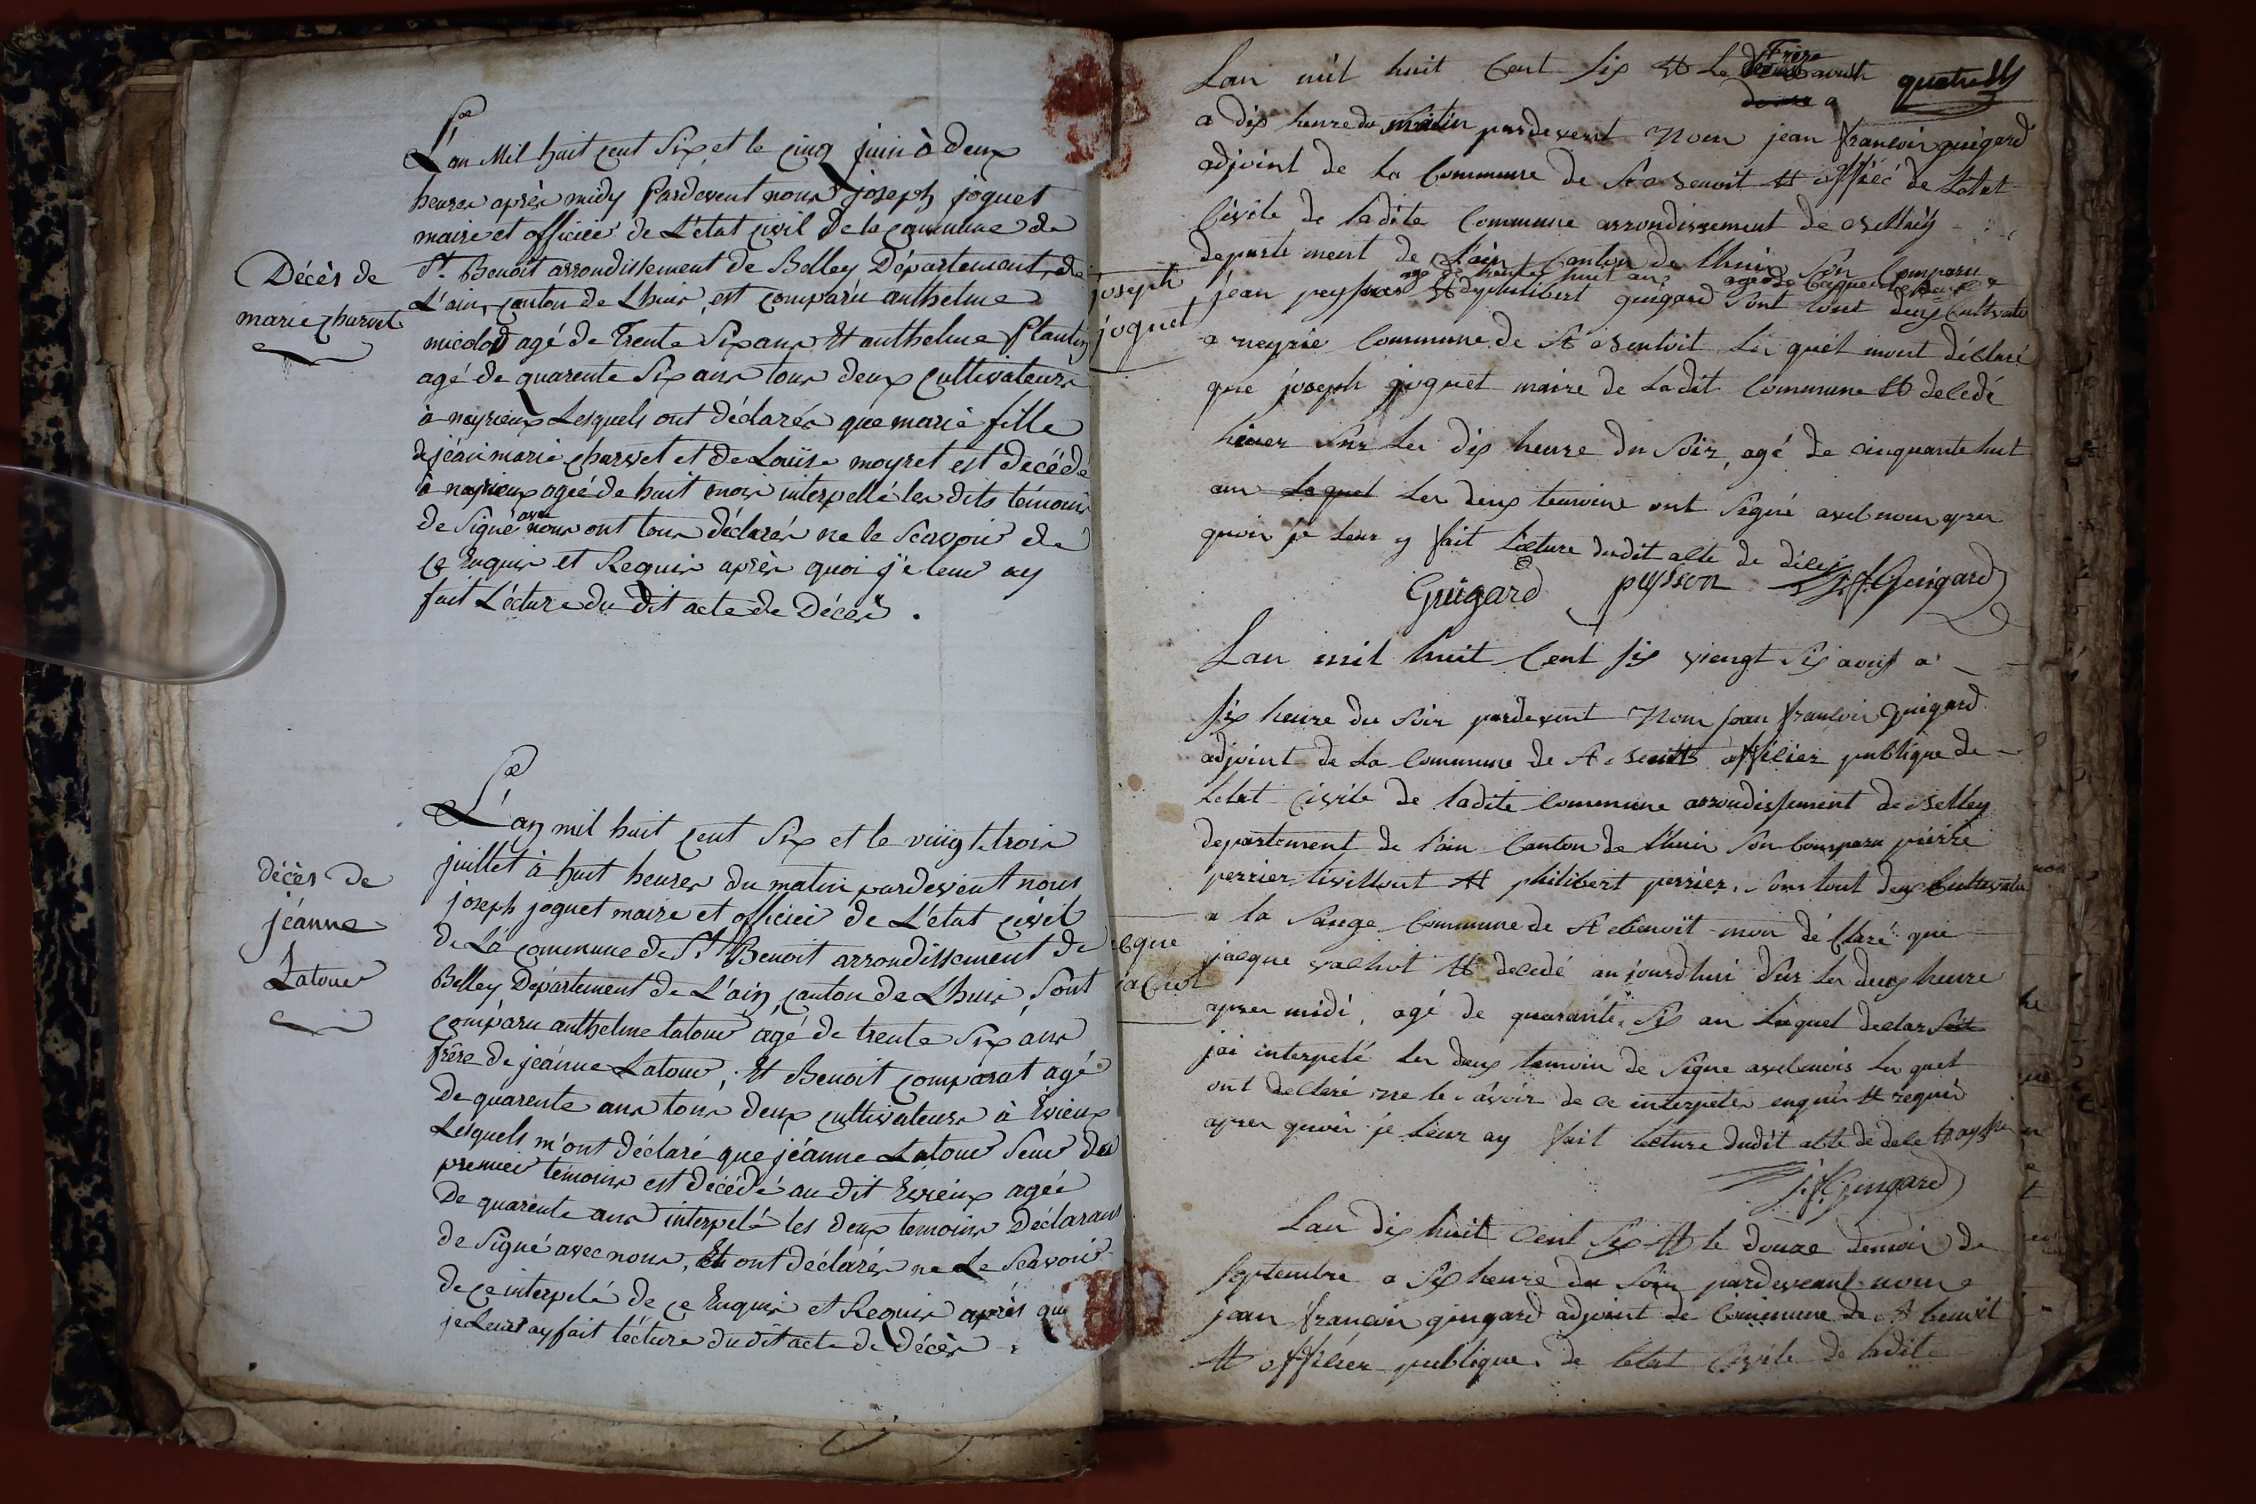 Décès de
marie charvet
L'an Mil huit cent Six et le cinq juin à deux
heures après midy Pardevent nous joseph joguet
maire et officier de L'etat civil de la commune de
St. Benoit arrondissement de Belley Département de
L'ain, canton de Lhuis, est comparu anthelme
micolod agé de Trente Six ans Et anthelme Plantin
agé de quarente Six ans tous deux cultivateurs
à neyrieux Lesquels ont déclarés que marie fille
de jéan marie charvet et de Louise moyret est décédé
à neyrieux agée de huit mois interpellé les dits témoins
de Signé avec nous ont tous déclarés ne le Scavoir de
ce Enquis et Requis après quoi je leur ay
fait Lecture du dit acte de Décès.
décès de
jéanne
Latour
L'an mil huit cent Six et le vingt trois
juillet à huit heures du matin pardevent nous
joseph joguet maire et officier de L'état civil
de La commune de St Benoit arrondissement de
Belley Département de L'ain canton de Lhuis, Sont
comparu anthelme latour agé de trente Six ans
frère de jeánne Latour, Et Benoit comparat agé
De quarente ans tous deux cultivateurs à Evieux
Lesquels m'ont déclaré que jéanne Latour Seur du
premier témoins est décédé au dit Evieux agée
De quarente ans interpelé les deux temoins Déclarans
de Signé avec nous, Et ont déclarés ne Le Scavoir
de ce interpelé de ce Enquis et Requis après quoi
je Leurs ay fait lécture du dit acte de décès
quatre
joseph
joguet
Lan mil huit Cent Six Et Le Treze avust
a dix heure du matin pardevent Nous jean francois guigard
adjoint de la Commune de St Benoit Et officié de Létat
Civile de ladite Commune arrondissement de Belley
departement de Lain Canton de Lhuis Son Comparu
jean peysson agé de trente huit ans Et de philibert guigard agé de Sont tout deux Cultivateur
a neyrie Commune de St Benoit Les quel mont déclaré
que joseph joguet maire de Ladit Commune Et decedé
hier Sur Les dix heure du Soir, agé de cinquante huit
an Laquel Les deux temoins ont Signé avec nous apres
quoi je leur y fait lecture dudit acte de décé
Guigard peysson J. f. Guigard
Lan mil huit Cent Six viengt Six avust a
Six heure du Soir pardevent Nous jean francois Guigard
adjoint de La Commune de St Benoit officier publique de
Letat Civile de ladite Commune arrondissement de Belley
departement de lain Canton de Lhuis Son Comparu pierre
perrier Et philibert perrier, Sons tout deux Cultivateur
a la Sauge Commune de St Benoit mon déClaré que
jacque vachot Et decedé aujourdhui Sur Les deux heure
apres midi, agé de quarante Six an Laquel
jai interpelé Les deux temoin de Signe avec nous Les quel
ont declaré ne le savoir de ce interpelé enquis Et requis
apres quoi je Leur ay fait lecture dudit acte de
J. f. Guigard
Lan dix huit Cent Six Et le douze demois de
Septembre a Six heure du Soir pardevant nous
jean francois guigard adjoint de Commune de St benoit
Et officier publique de letat Civile de ladite